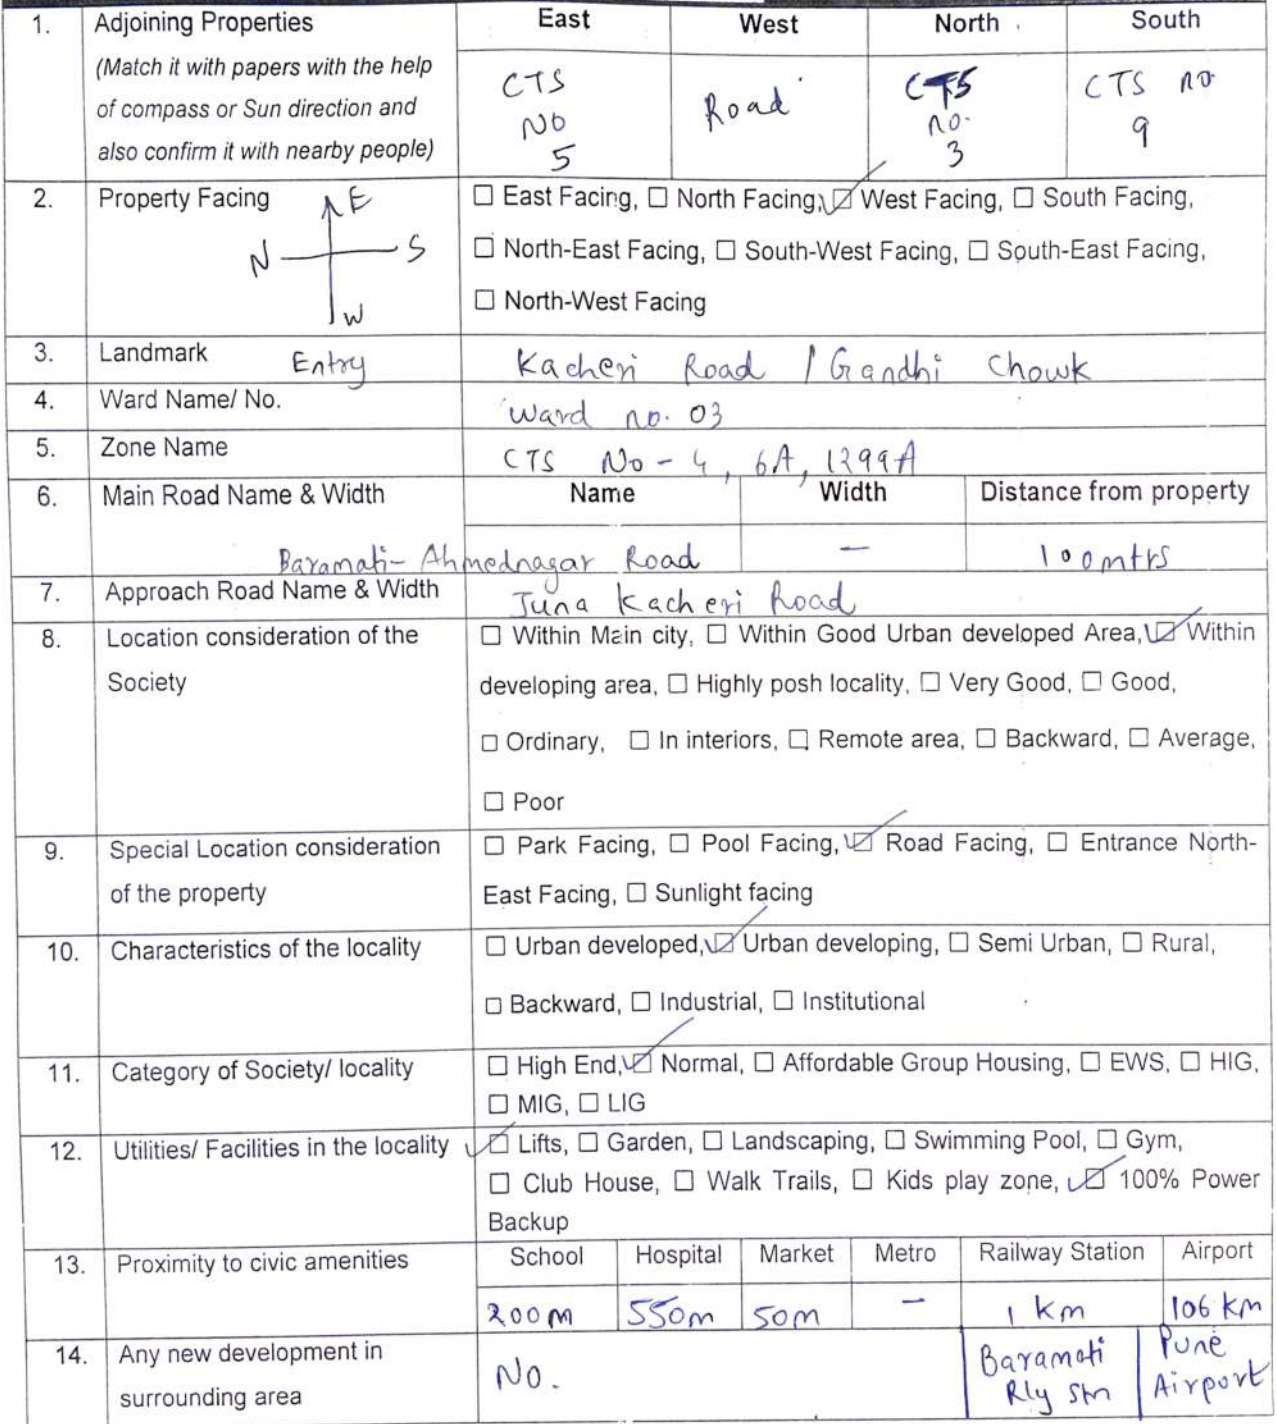 1. Adjoining Properties East West North South
(Match it with papers with the help
of compass or Sun direction and
also confirm it with nearby people)
CTS
NO
5
Road
CTS
no.
3
CTS no.
9
2. Property Facing
E
N S
W
☐ East Facing, ☐ North Facing, ☑ West Facing, ☐ South Facing,
☐ North-East Facing, ☐ South-West Facing, ☐ South-East Facing,
☐ North-West Facing
3. Landmark Entry Kacheri Road / Gandhi Chowk
4. Ward Name/ No. Ward no. 03
5. Zone Name CTS No - 4, 6A, 1299A
6. Main Road Name & Width Name Width Distance from property
Baramati- Ahmednagar Road — 100mtrs
7. Approach Road Name & Width Juna Kacheri Road
8. Location consideration of the
Society
☐ Within Main city, ☐ Within Good Urban developed Area, ☑ Within
developing area, ☐ Highly posh locality, ☐ Very Good, ☐ Good,
☐ Ordinary, ☐ In interiors, ☐ Remote area, ☐ Backward, ☐ Average,
☐ Poor
9. Special Location consideration
of the property
☐ Park Facing, ☐ Pool Facing, ☑ Road Facing, ☐ Entrance North-
East Facing, ☐ Sunlight facing
10. Characteristics of the locality
☐ Urban developed, ☑ Urban developing, ☐ Semi Urban, ☐ Rural,
☐ Backward, ☐ Industrial, ☐ Institutional
11. Category of Society/ locality
☐ High End, ☑ Normal, ☐ Affordable Group Housing, ☐ EWS, ☐ HIG,
☐ MIG, ☐ LIG
12. Utilities/ Facilities in the locality
☑ Lifts, ☐ Garden, ☐ Landscaping, ☐ Swimming Pool, ☐ Gym,
☐ Club House, ☐ Walk Trails, ☐ Kids play zone, ☑ 100% Power
Backup
13. Proximity to civic amenities School Hospital Market Metro Railway Station Airport
200m 550m 50m — 1 km 106 km
14. Any new development in
surrounding area
No.
Baramati
Rly Stn
Pune
Airport